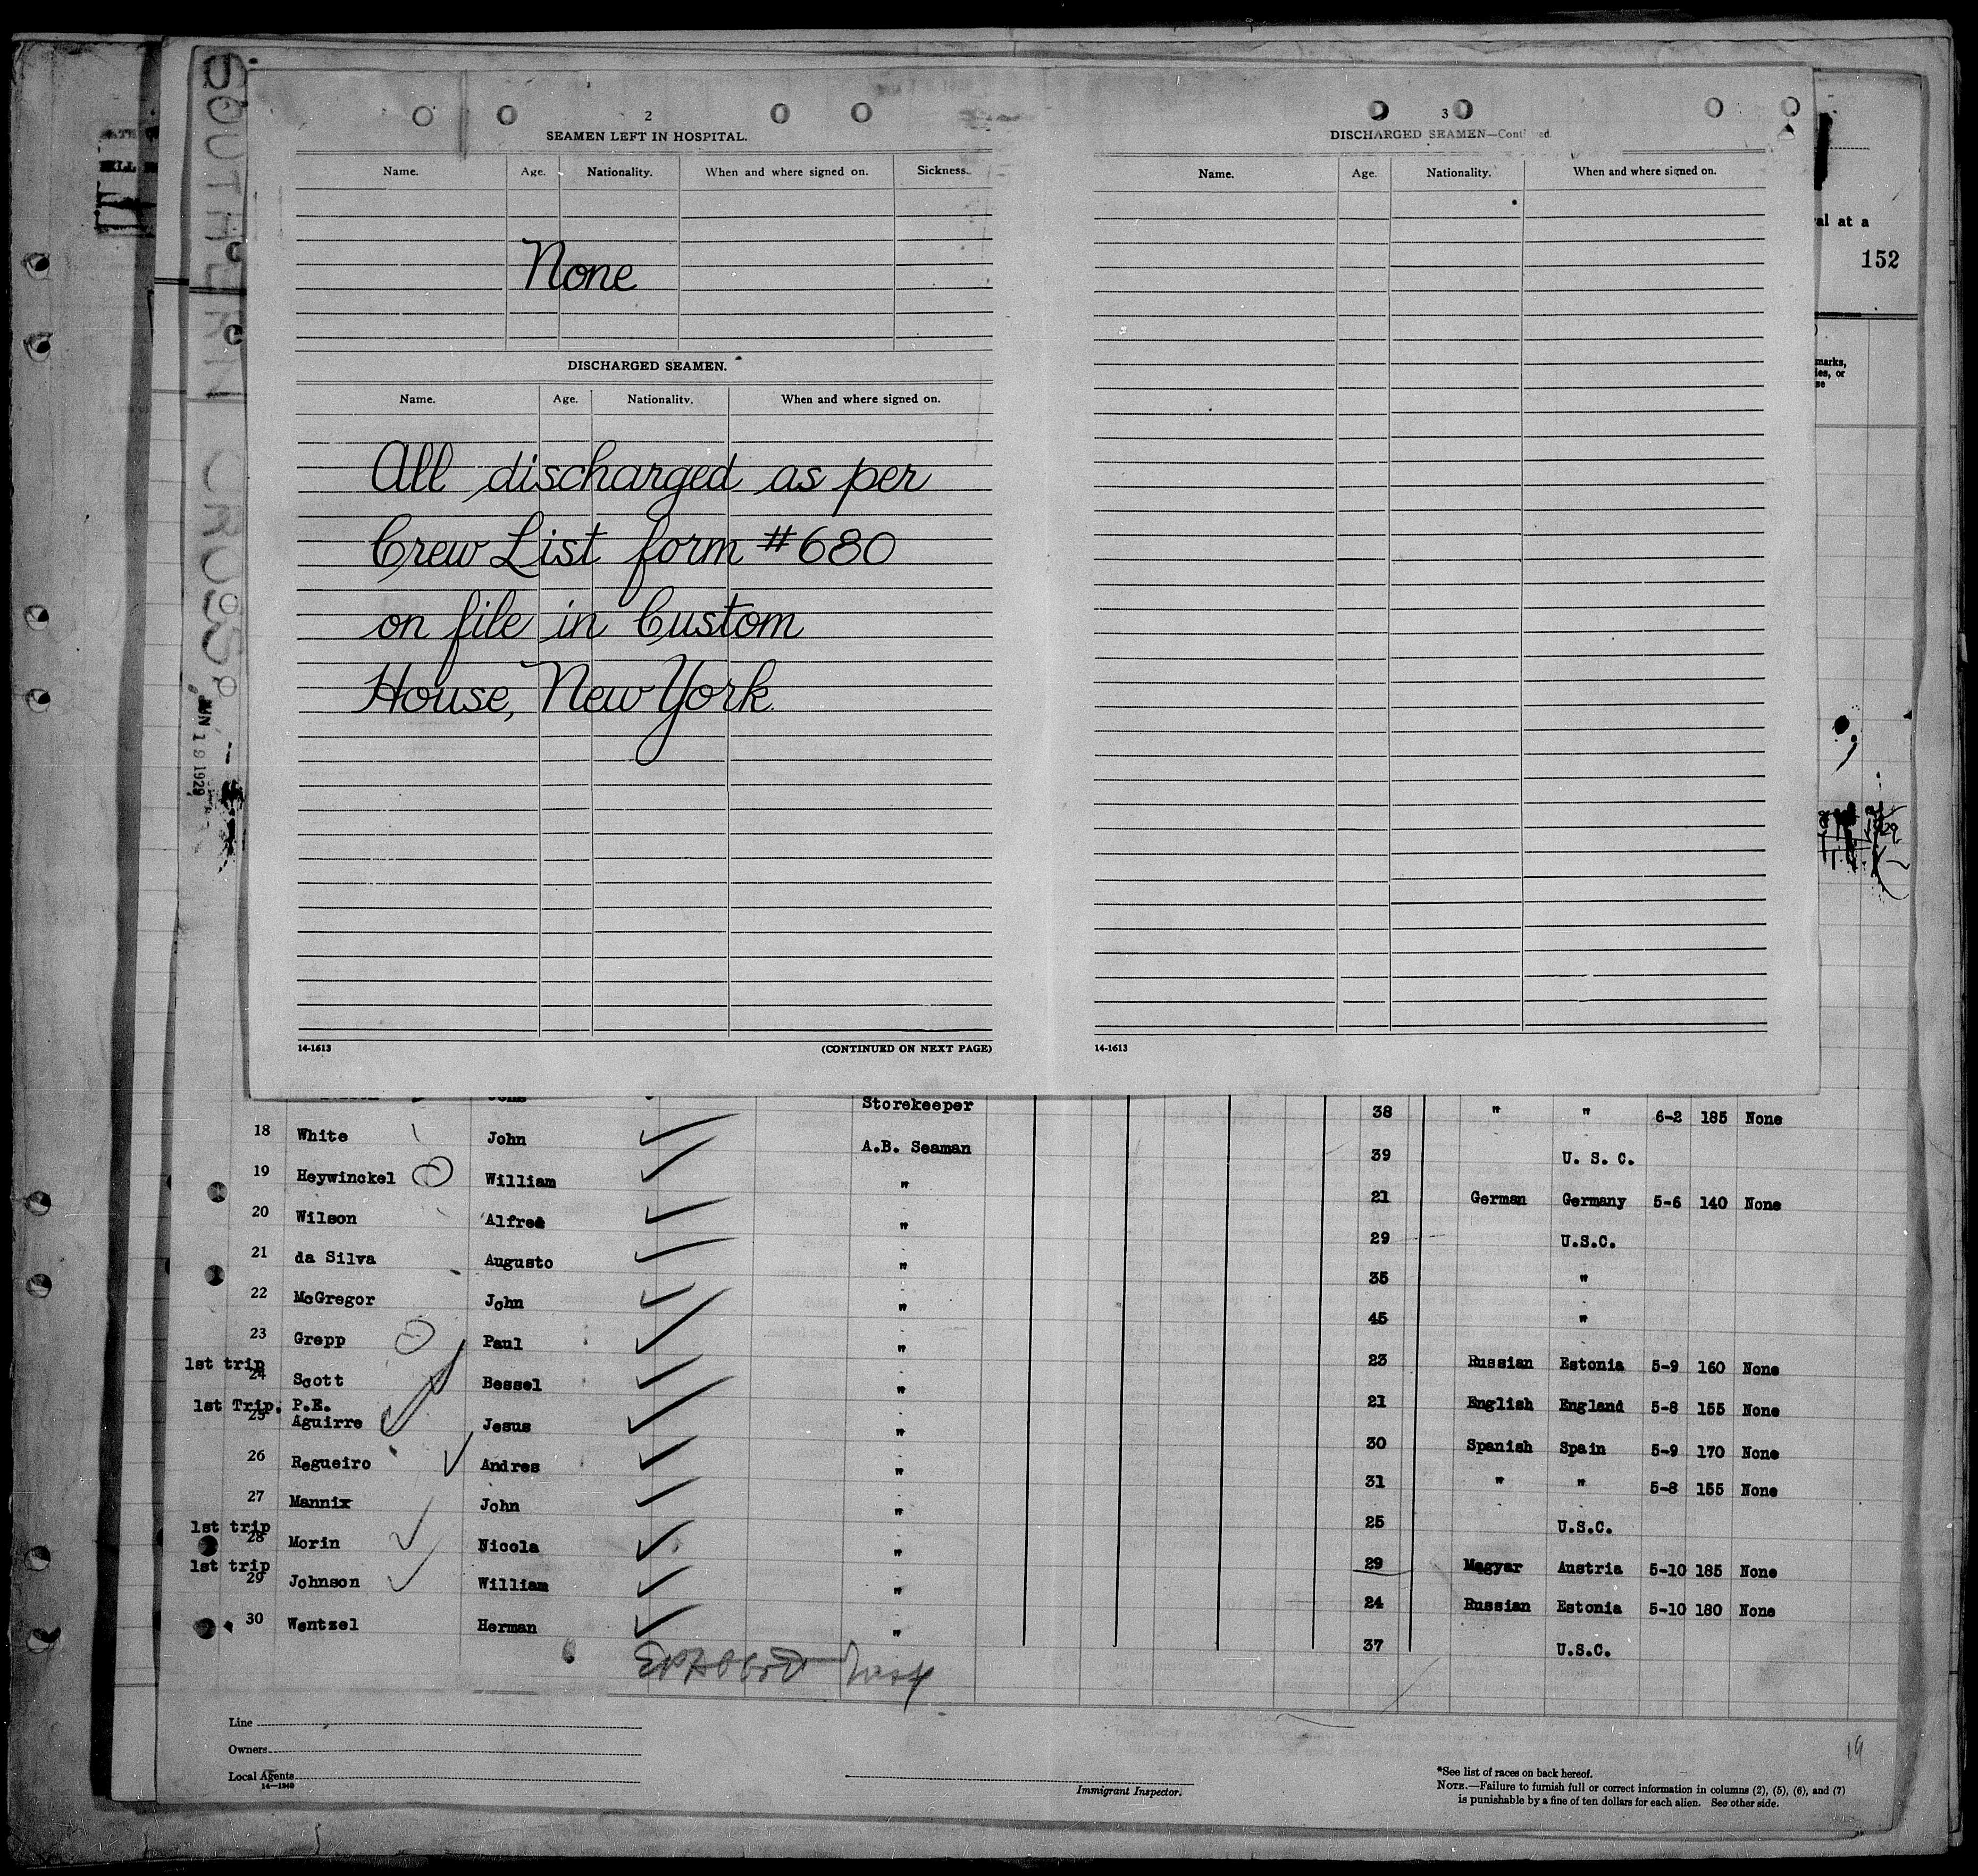 SOUTHERN CROSS
JUN 19 1929
2
SEAMEN LEFT IN HOSPITAL.
Name. Age. Nationality. When and where signed on. Sickness.
None
DISCHARGED SEAMEN.
Name. Age. Nationality. When and where signed on.
All discharged as per
Crew List form #680
on file in Custom
House, New York.
14-1613 (CONTINUED ON NEXT PAGE)
3
DISCHARGED SEAMEN—Continued.
Name. Age. Nationality. When and where signed on.
14-1613
al at a
152
marks,
ies, or
se
Storekeeper 38 " " 6-2 185 None
18 White John A.B. Seaman 39 U. S. C.
19 Heywinckel William " 21 German Germany 5-6 140 None
20 Wilson Alfred " 29 U.S.C.
21 da Silva Augusto " 35 "
22 McGregor John " 45 "
23 Grepp Paul " 23 Russian Estonia 5-9 160 None
1st trip
24 Scott Bessel " 21 English England 5-8 155 None
1st Trip. P.E.
25 Aguirre Jesus " 30 Spanish Spain 5-9 170 None
26 Regueiro Andres " 31 " " 5-8 155 None
27 Mannix John " 25 U.S.C.
1st trip
28 Morin Nicola " 29 Magyar Austria 5-10 185 None
1st trip
29 Johnson William " 24 Russian Estonia 5-10 180 None
30 Wentzel Herman " 37 U.S.C.
Line
Owners
Local Agents
14-1240
Immigrant Inspector.
19
*See list of races on back hereof.
NOTE.—Failure to furnish full or correct information in columns (2), (5), (6), and (7)
is punishable by a fine of ten dollars for each alien. See other side.